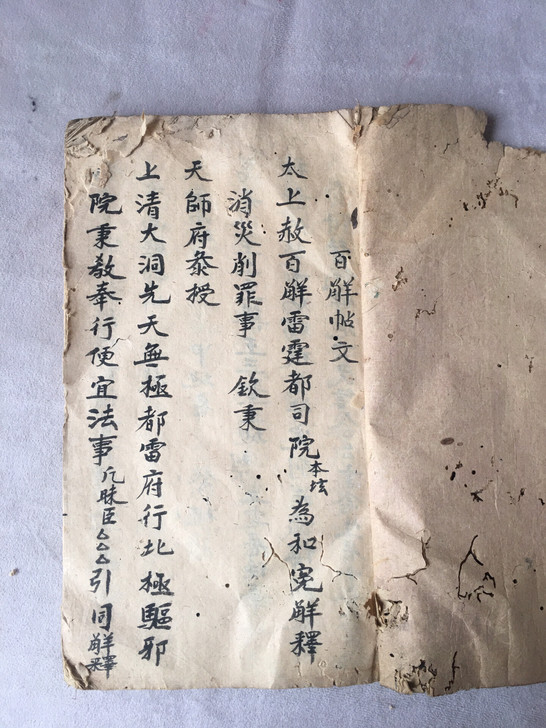 百解帖文
太上赦百解雷霆都司院本坛為和冤解釋
消災削罪事 欽秉
天師府叅授
上清大洞先天無極都雷府行北極驅邪
院秉教奉行便宜法事凡昧臣厶厶厶引同解釋